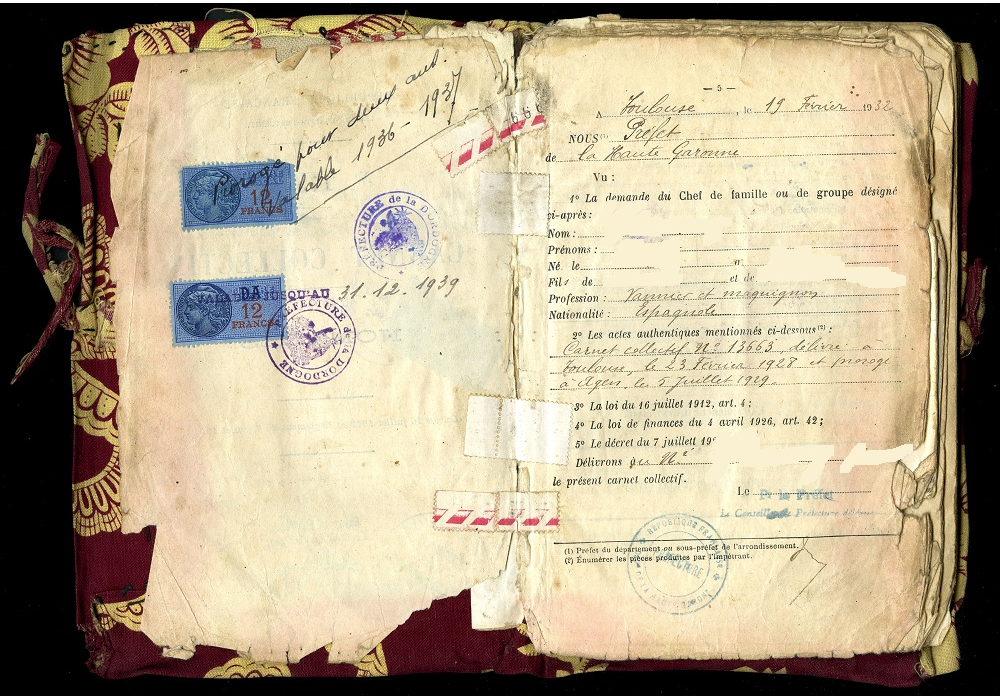 Prorogé pour deux ans.
Valable 1936 - 1937
12
FRANCS
PRÉFECTURE de la DORDOGNE
VALABLE JUSQU'AU 31.12.1939
12
FRANCS
PRÉFECTURE de la DORDOGNE
— 5 —
A Toulouse, le 19 Février 1932
NOUS(1) Préfet
de la Haute Garonne
Vu :
1º La demande du Chef de famille ou de groupe désigné
ci-après :
Nom :
Prénoms :
Né le
Fils de et de
Profession : Vannier et maquignon
Nationalité : Espagnole
2º Les actes authentiques mentionnés ci-dessous(2) :
Carnet collectif Nº 13663, délivré à
Toulouse, le 23 Février 1928 et prorogé
à Agen, le 5 juillet 1929.
3º La loi du 16 juillet 1912, art. 4 ;
4º La loi de finances du 4 avril 1926, art. 42 ;
5º Le décret du 7 juillett 19
Délivrons
le présent carnet collectif.
Le Pr le Préfet
Le Conseiller de Préfecture délégué
RÉPUBLIQUE FRANÇAISE
PRÉFECTURE
(1) Préfet du département ou sous-préfet de l'arrondissement.
(2) Énumérer les pièces produites par l'impétrant.